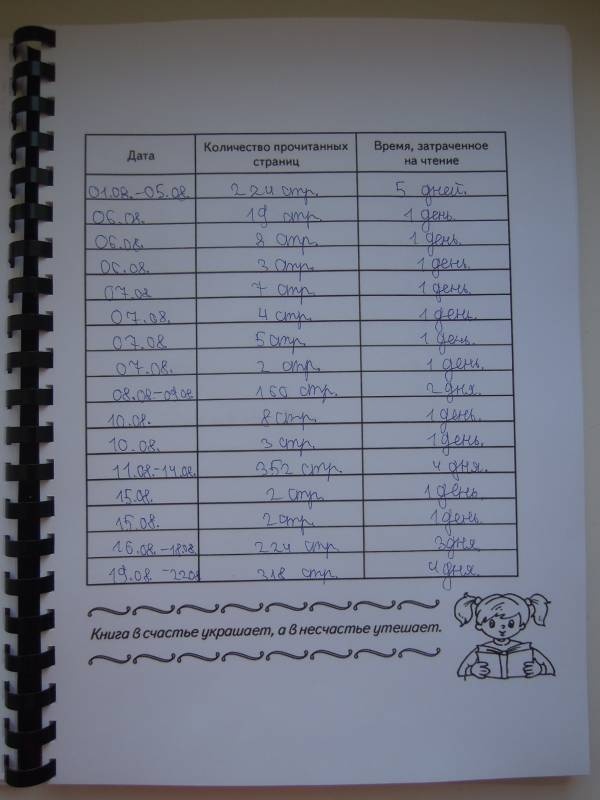 Дата Количество прочитанных страниц Время, затраченное на чтение
01.08.-05.08 224 стр. 5 дней.
06.08. 19 стр. 1 день.
06.08. 8 стр. 1 день.
06.08. 3 стр. 1 день.
07.08 7 стр. 1 день.
07.08. 4 стр. 1 день.
07.08 5 стр. 1 день.
07.08. 2 стр. 1 день.
08.08.-09.08 160 стр. 2 дня.
10.08. 8 стр. 1 день.
10.08. 3 стр. 1 день.
11.08.-14.08. 352 стр. 4 дня.
15.08. 2 стр. 1 день
15.08. 2 стр. 1 день.
16.08.-18.08. 224 стр. 3 дня
19.08.-22.08 318 стр. 4 дня.
Книга в счастье украшает, а в несчастье утешает.